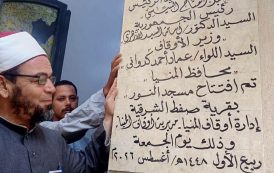 رئيس الجمهورية
السيد الدكتور / أسامة السيد الأزهري
وزير الأوقاف
السيد اللواء / عماد أحمد كدواني
محافظ المنيا
تم افتتاح مسجد النور
بقرية صفط الشرقية
إدارة أوقاف المنيا
وذلك يوم الجمعة
ربيع الأول ١٤٤٨هـ / أغسطس ٢٠٢٦